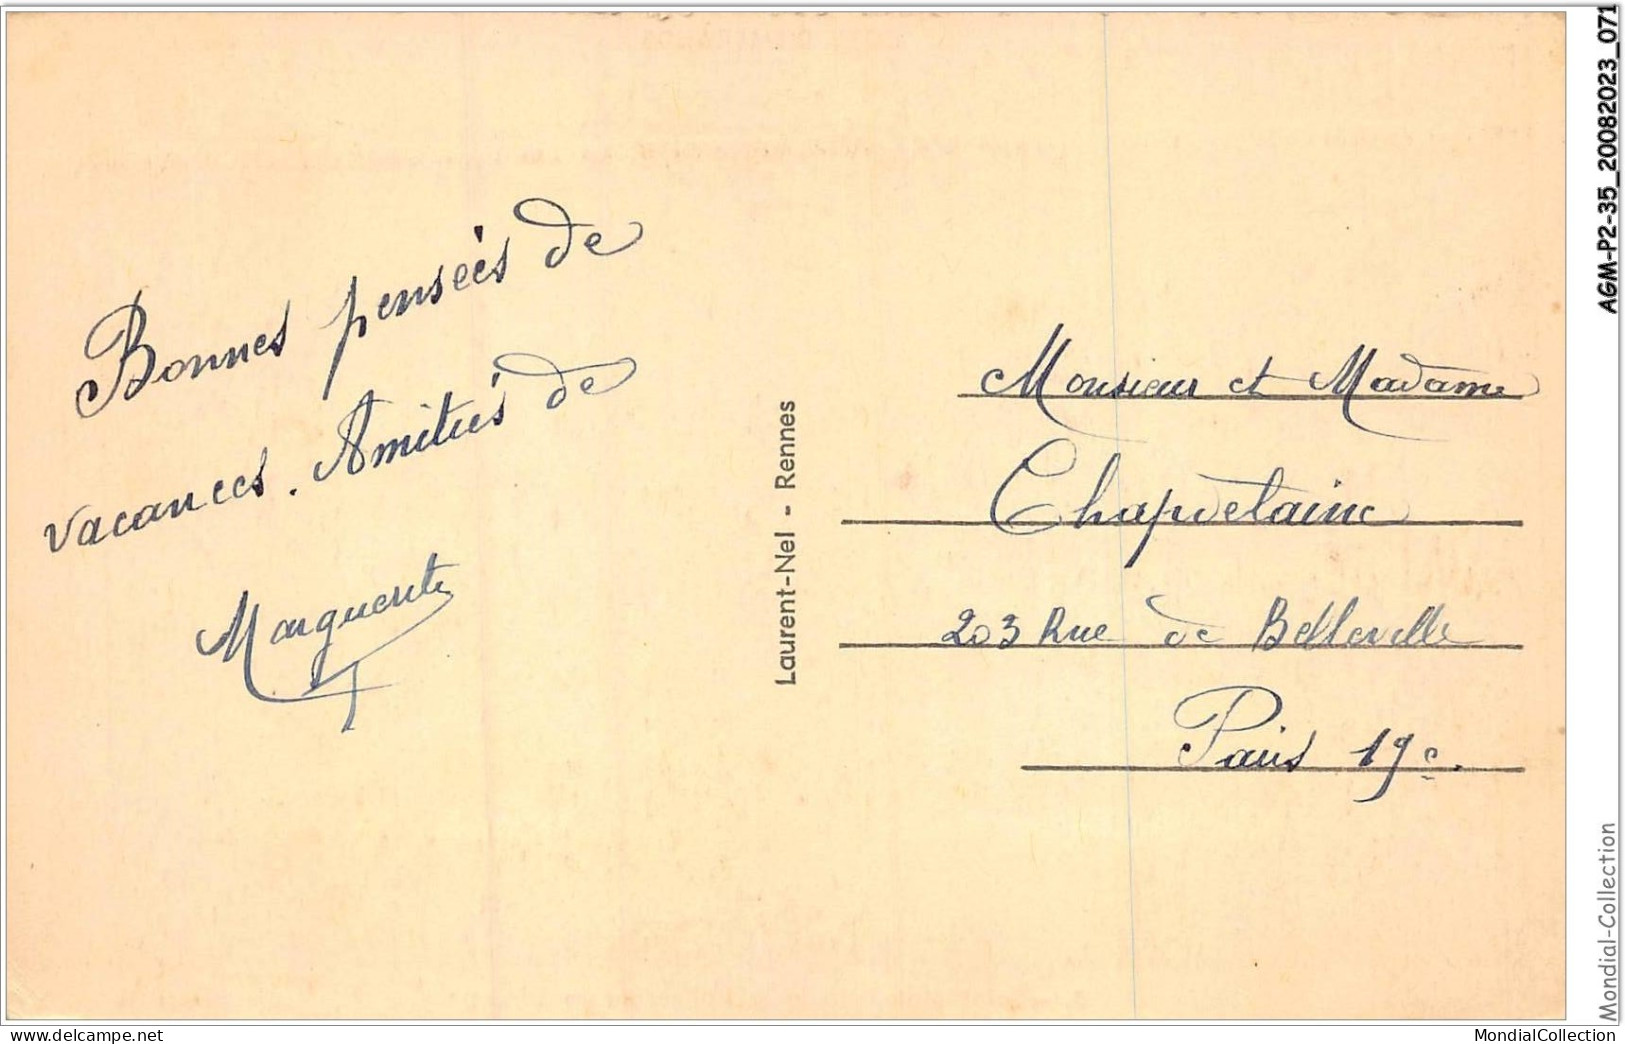 Bonnes pensées de
vacances. Amitiés de
Marguerite
Laurent-Nel - Rennes
Monsieur et Madame
Chapdelaine
203 Rue de Belleville
Paris 19e.
AGM-P2-35_20082023_071
Mondial-Collection
delcampe.net
MondialCollection